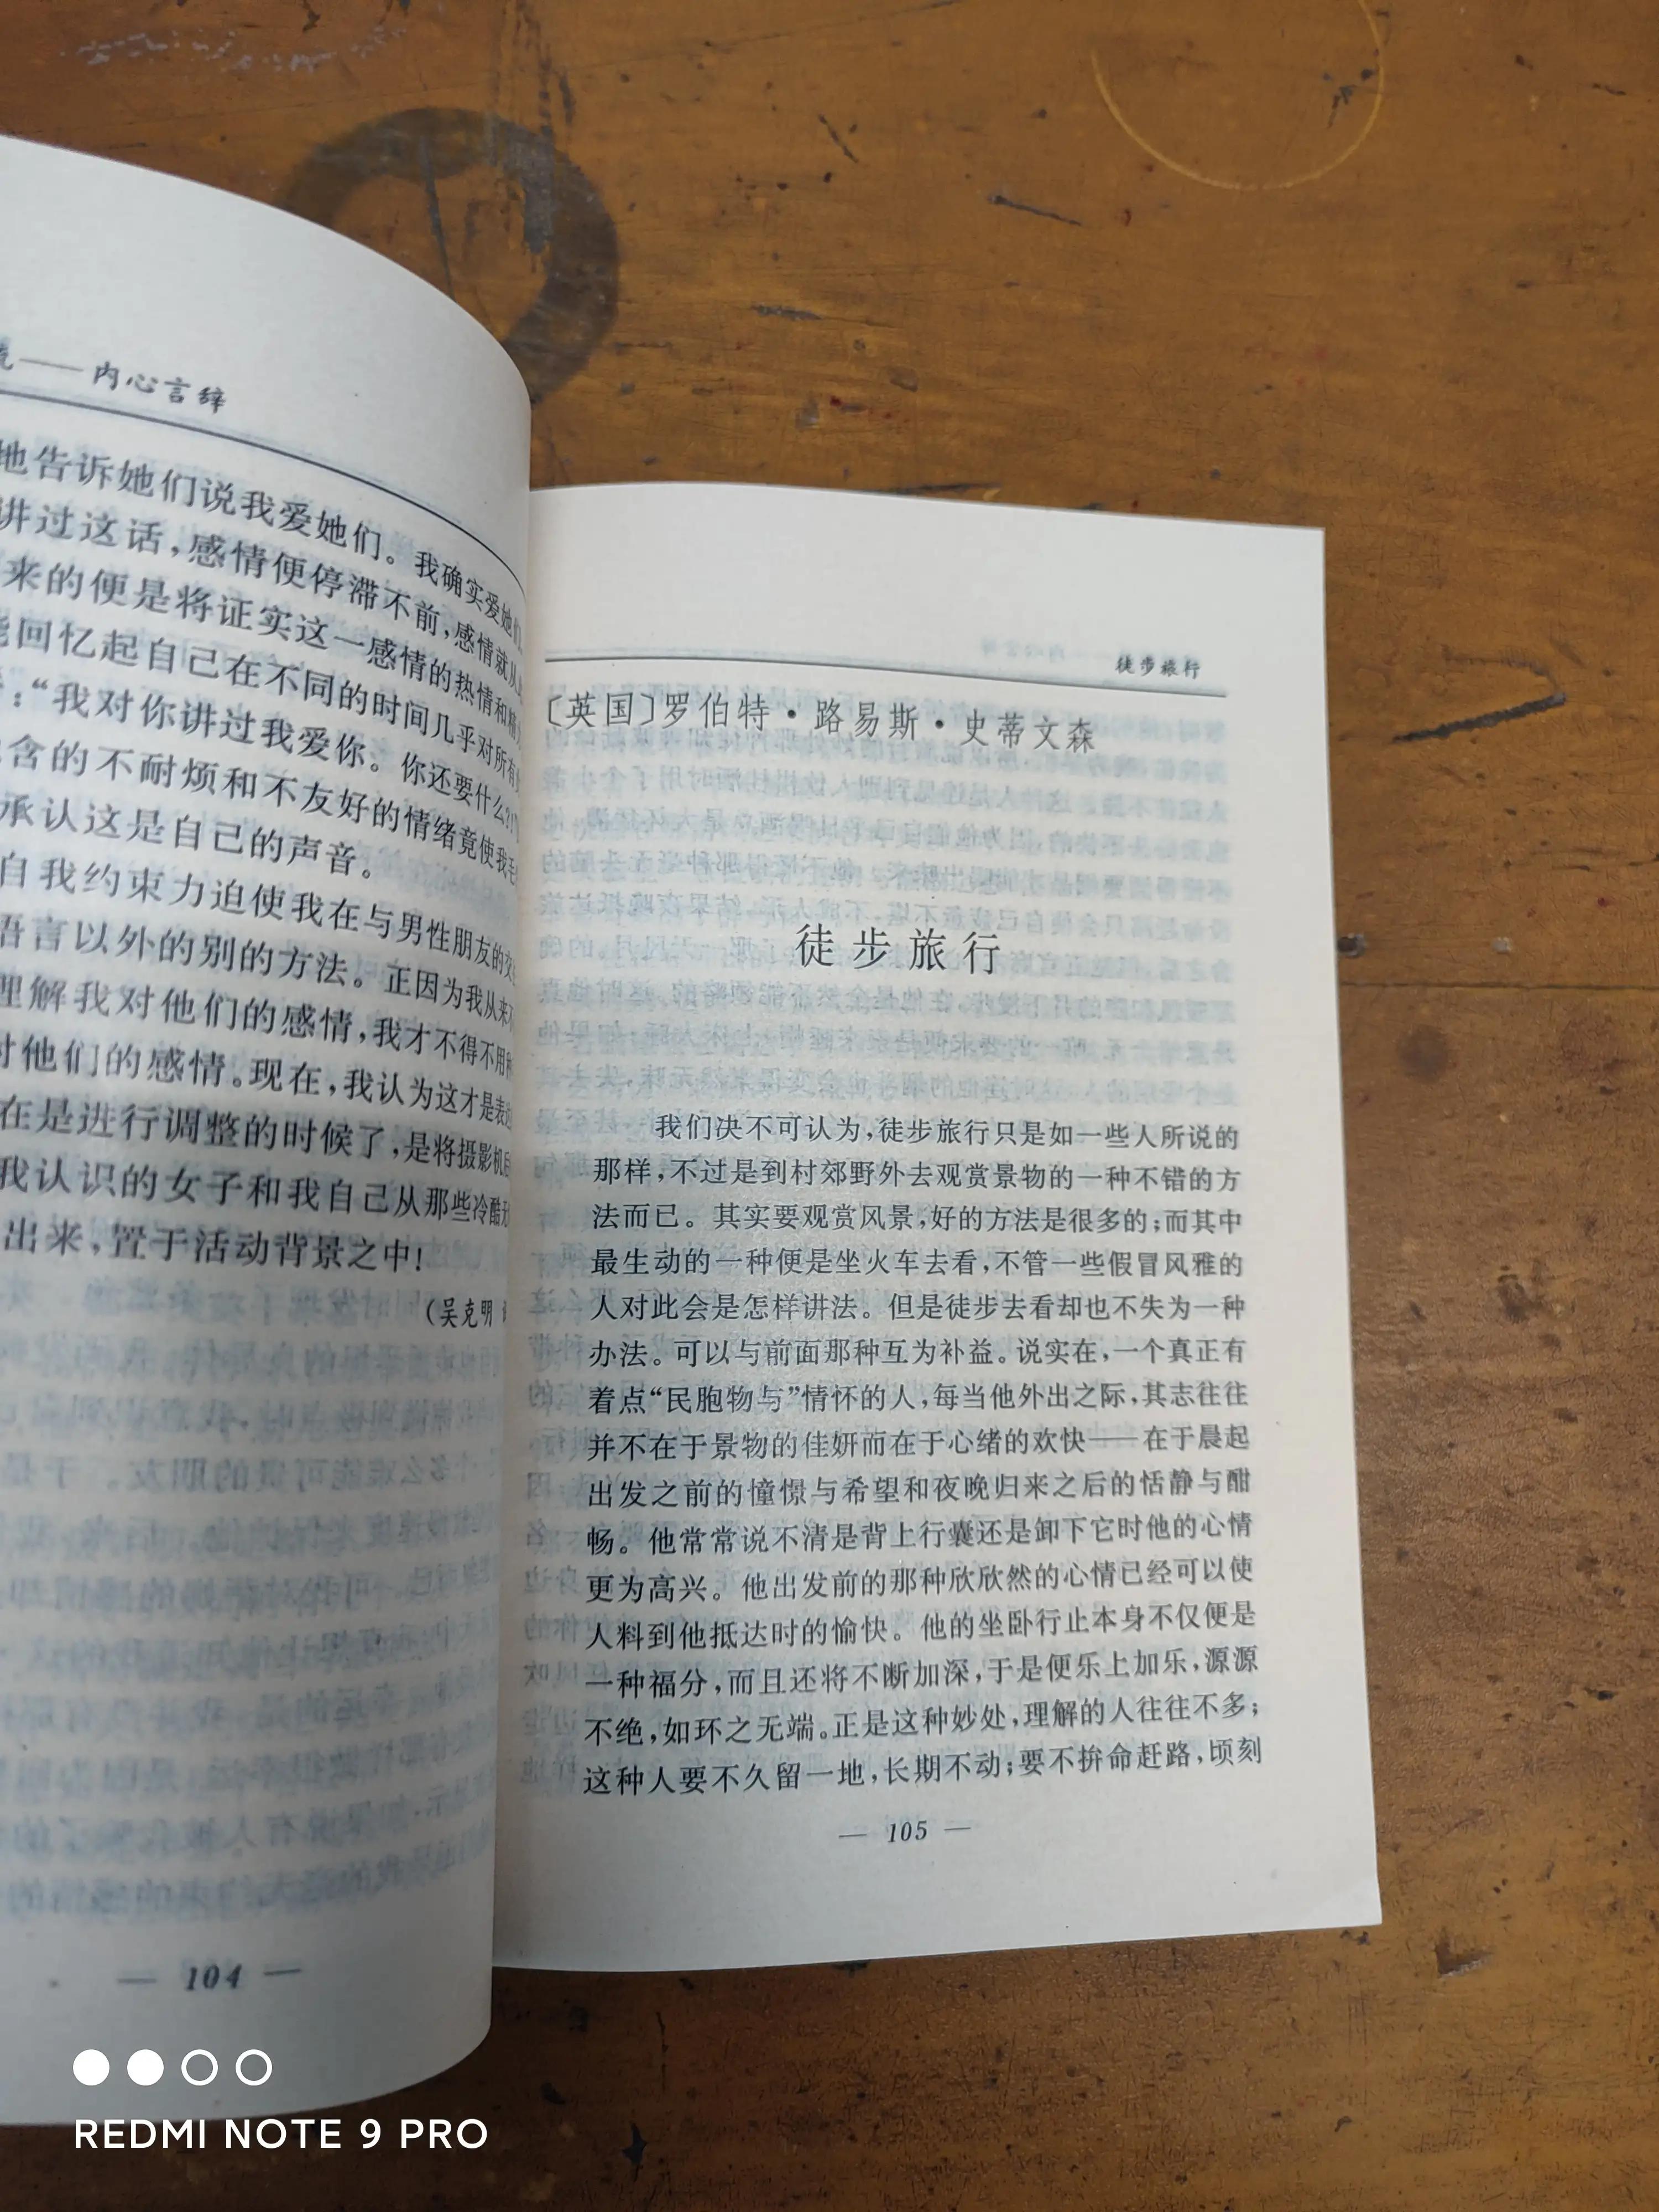 ——内心言辞
地告诉她们说我爱她们。我确实爱她们
讲过这话,感情便停滞不前,感情就从
来的便是将证实这一感情的热情和精
回忆起自己在不同的时间几乎对所有
:“我对你讲过我爱你。你还要什么?!”
含的不耐烦和不友好的情绪竟使我毛
承认这是自己的声音。
自我约束力迫使我在与男性朋友的交
语言以外的别的方法。正因为我从来不
理解我对他们的感情,我才不得不用
对他们的感情。现在,我认为这才是表
在是进行调整的时候了,是将摄影机
我认识的女子和我自己从那些冷酷
出来,置于活动背景之中!
(吴克明
— 104 —
徒步旅行
〔英国〕罗伯特·路易斯·史蒂文森
徒步旅行
我们决不可认为,徒步旅行只是如一些人所说的
那样,不过是到村郊野外去观赏景物的一种不错的方
法而已。其实要观赏风景,好的方法是很多的;而其中
最生动的一种便是坐火车去看,不管一些假冒风雅的
人对此会是怎样讲法。但是徒步去看却也不失为一种
办法。可以与前面那种互为补益。说实在,一个真正有
着点“民胞物与”情怀的人,每当他外出之际,其志往往
并不在于景物的佳妍而在于心绪的欢快——在于晨起
出发之前的憧憬与希望和夜晚归来之后的恬静与酣
畅。他常常说不清是背上行囊还是卸下它时他的心情
更为高兴。他出发前的那种欣欣然的心情已经可以使
人料到他抵达时的愉快。他的坐卧行止本身不仅便是
一种福分,而且还将不断加深,于是便乐上加乐,源源
不绝,如环之无端。正是这种妙处,理解的人往往不多;
这种人要不久留一地,长期不动;要不拚命赶路,顷刻
— 105 —
REDMI NOTE 9 PRO